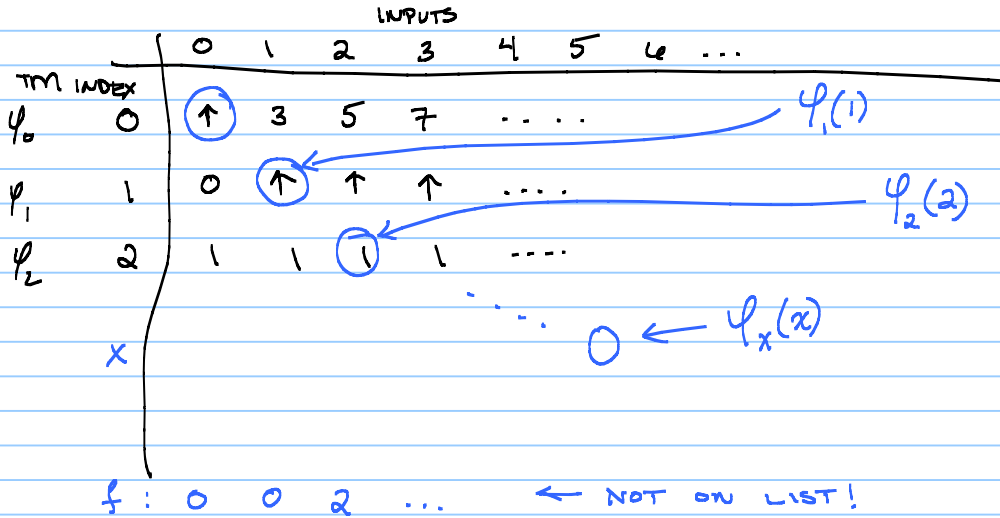 INPUTS
0 1 2 3 4 5 6 ...
TM INDEX
φ₀ 0 ↑ 3 5 7 .... φ₁(1)
φ₁ 1 0 ↑ ↑ ↑ .... φ₂(2)
φ₂ 2 1 1 1 1 ....
... φₓ(x)
x
f : 0 0 2 ... ← NOT ON LIST!